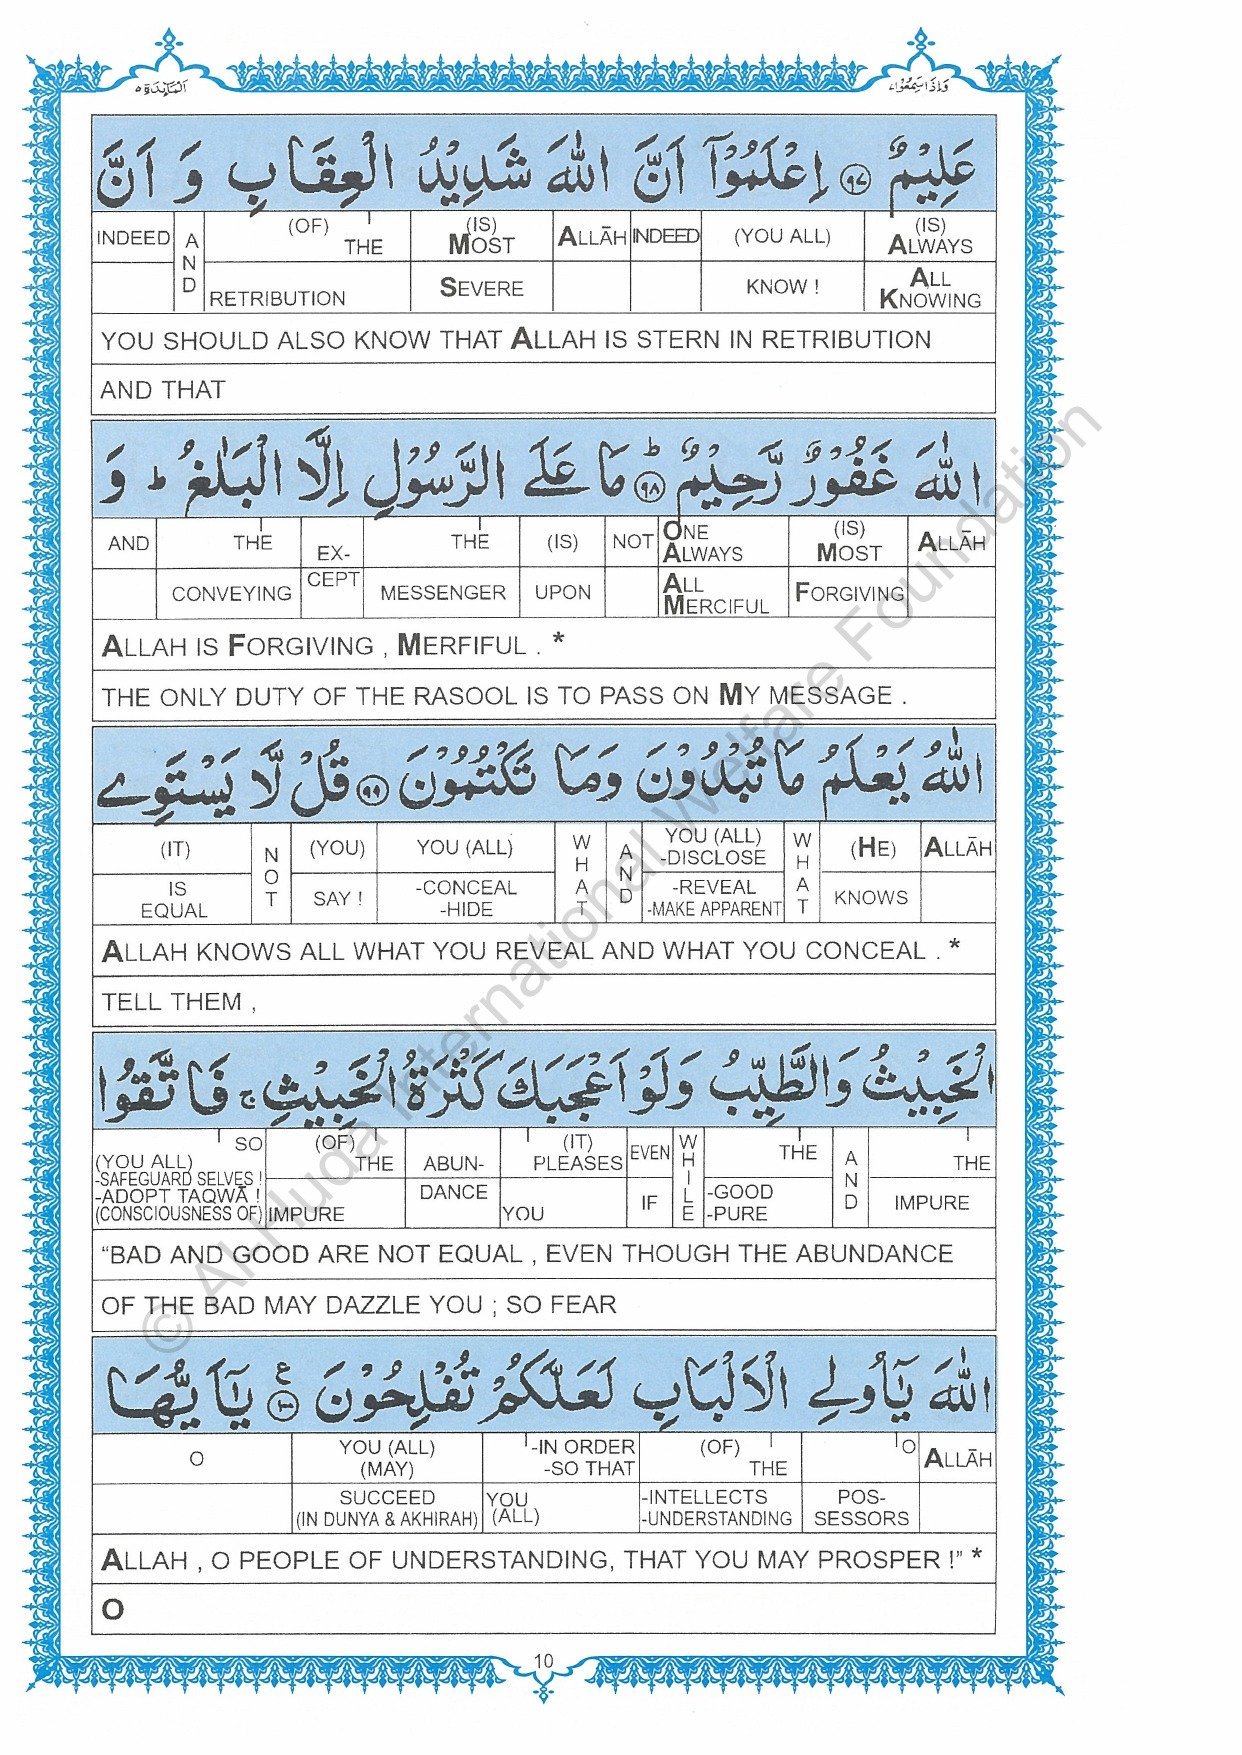 اَلْمَآئِدَة ٥
وَاِذَا سَمِعُوْا ٧
عَلِيْمٌ ۝٩٧ اِعْلَمُوْٓا اَنَّ اللّٰهَ شَدِيْدُ الْعِقَابِ وَ اَنَّ
INDEED | AND | (OF) THE | (IS) MOST | ALLĀH | INDEED | (YOU ALL) | (IS) ALWAYS
RETRIBUTION | SEVERE | KNOW ! | ALL KNOWING
YOU SHOULD ALSO KNOW THAT ALLAH IS STERN IN RETRIBUTION
AND THAT
اللّٰهَ غَفُوْرٌ رَّحِيْمٌ ۝٩٨ؕ مَا عَلَى الرَّسُوْلِ اِلَّا الْبَلٰغُ ؕ وَ
AND | THE | EX- | THE | (IS) | NOT | ONE ALWAYS | (IS) MOST | ALLĀH
CONVEYING | CEPT | MESSENGER | UPON | ALL MERCIFUL | FORGIVING
ALLAH IS FORGIVING , MERFIFUL . *
THE ONLY DUTY OF THE RASOOL IS TO PASS ON MY MESSAGE .
اللّٰهُ يَعْلَمُ مَا تُبْدُوْنَ وَمَا تَكْتُمُوْنَ ۝٩٩ قُلْ لَّا يَسْتَوِى
(IT) | NOT | (YOU) | YOU (ALL) | WHAT | AND | YOU (ALL) -DISCLOSE | WHAT | (HE) | ALLĀH
IS EQUAL | SAY ! | -CONCEAL -HIDE | -REVEAL -MAKE APPARENT | KNOWS
ALLAH KNOWS ALL WHAT YOU REVEAL AND WHAT YOU CONCEAL . *
TELL THEM ,
الْخَبِيْثُ وَالطَّيِّبُ وَلَوْ اَعْجَبَكَ كَثْرَةُ الْخَبِيْثِ ۚ فَاتَّقُوا
SO (YOU ALL) | (OF) THE | ABUN- | (IT) PLEASES | EVEN | WHILE | THE | AND | THE
-SAFEGUARD SELVES ! -ADOPT TAQWĀ ! (CONSCIOUSNESS OF) | IMPURE | DANCE | YOU | IF | -GOOD -PURE | IMPURE
“BAD AND GOOD ARE NOT EQUAL , EVEN THOUGH THE ABUNDANCE
OF THE BAD MAY DAZZLE YOU ; SO FEAR
اللّٰهَ يٰٓاُولِى الْاَلْبَابِ لَعَلَّكُمْ تُفْلِحُوْنَ ۝١٠٠ ع يٰٓاَيُّهَا
O | YOU (ALL) (MAY) | -IN ORDER -SO THAT | (OF) THE | O | ALLĀH
SUCCEED (IN DUNYA & AKHIRAH) | YOU (ALL) | -INTELLECTS -UNDERSTANDING | POS- SESSORS
ALLAH , O PEOPLE OF UNDERSTANDING, THAT YOU MAY PROSPER !” *
O
10
© Al-Huda International Welfare Foundation